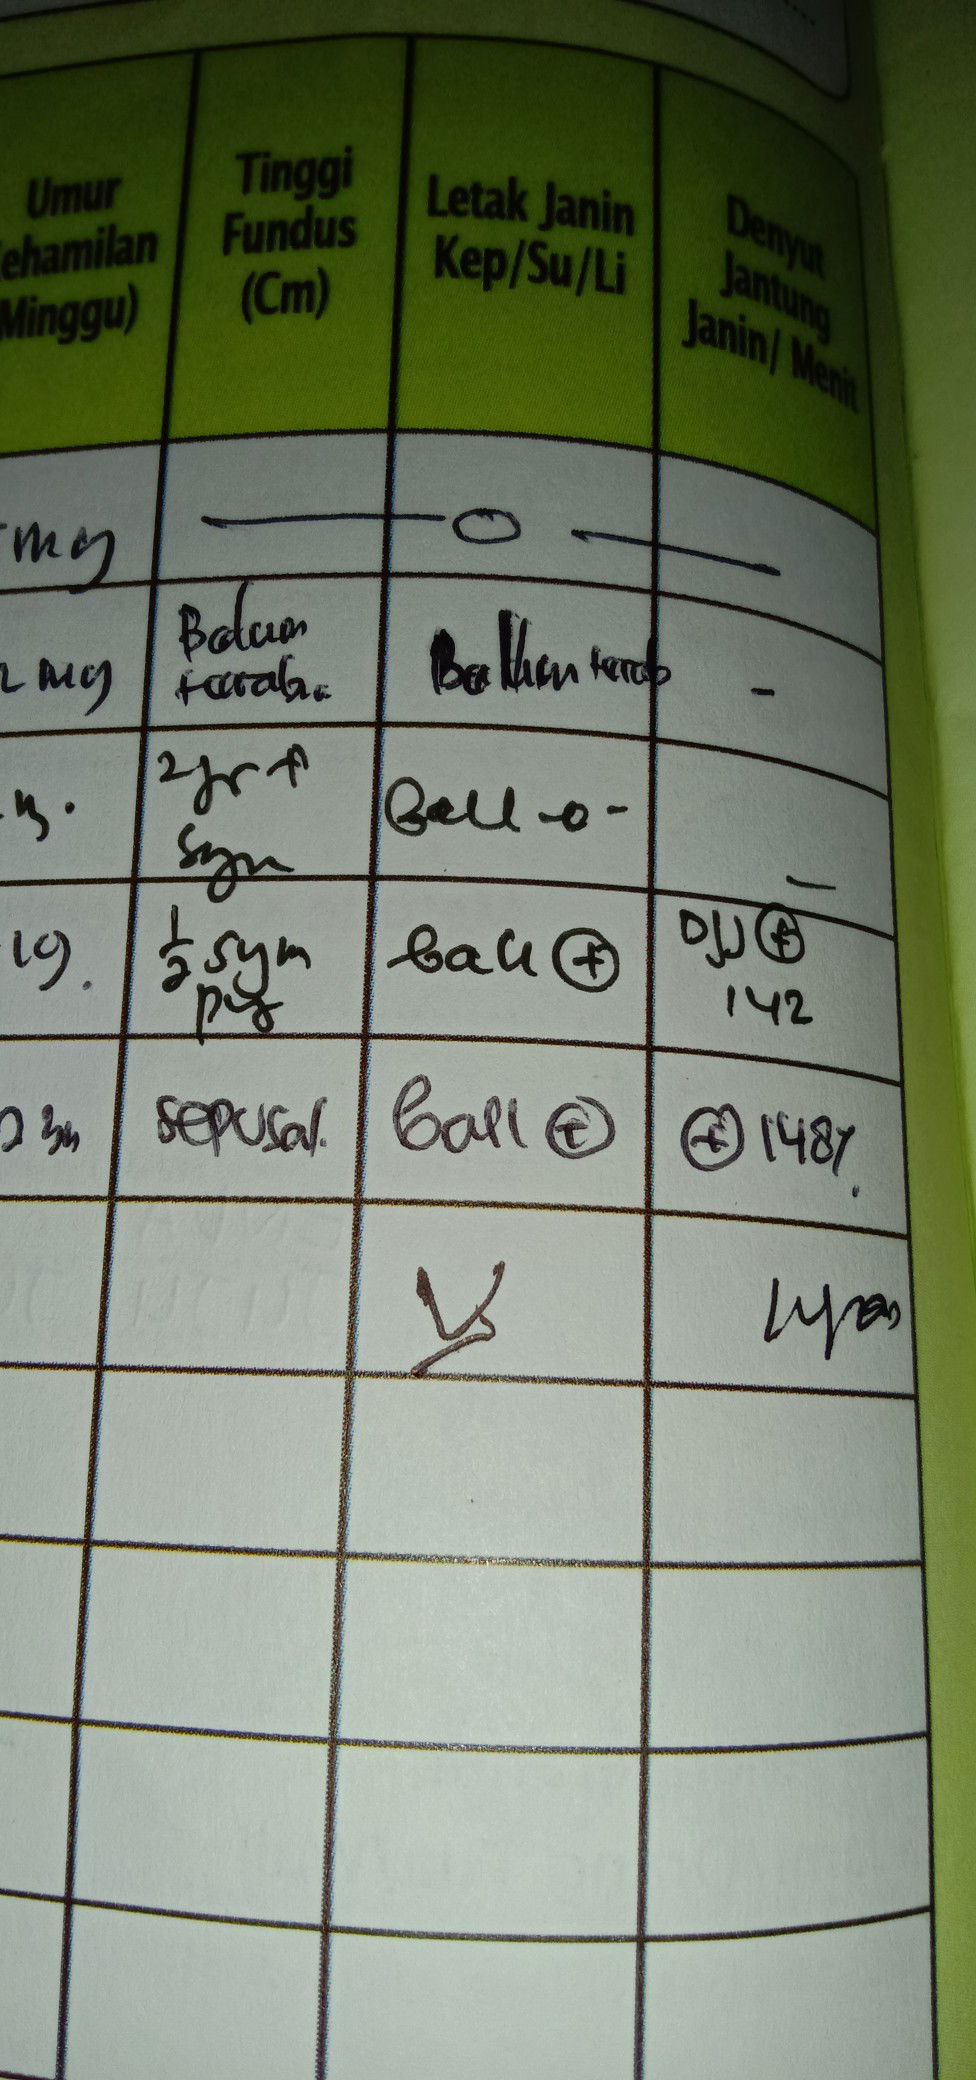 Umur
ehamilan
Minggu)
Tinggi
Fundus
(Cm)
Letak Janin
Kep/Su/Li
Denyut
Jantung
Janin/ Menit
mg
Belum
teraba
mg
2 jr ↑
sym
Ball -o-
-
19.
1/2 sym
ball (+)
DJJ (+)
142
sepusat.
Ball (+)
(+) 148